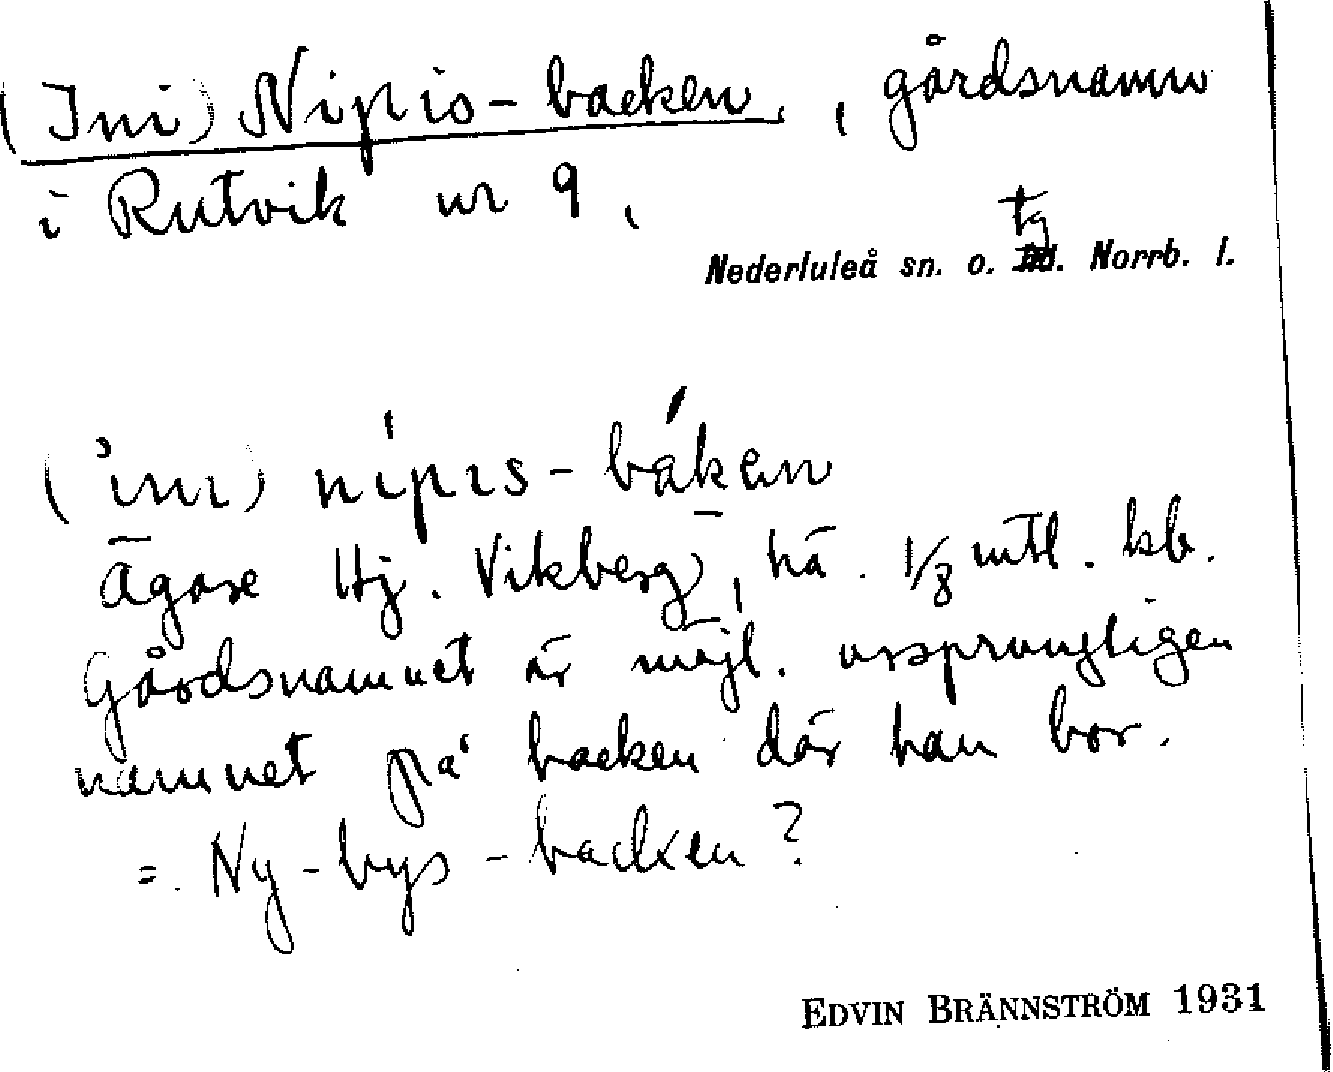 (Ini) Nipis-backen, gårdsnamn
i Rutvik nr 9,
tg
Nederluleå sn. o. hd. Norrb. l.
(ini) nipis-baken
Ägare Hj. Vikberg, hä. 1/8 mtl. kb.
Gårdsnamnet är möjl. ursprungligen
namnet på backen där han bor.
= Ny-bys-backen?
EDVIN BRÄNNSTRÖM 1931